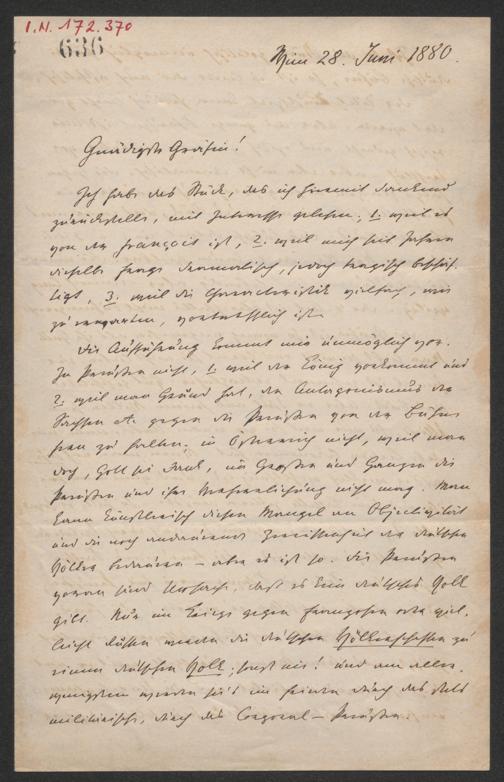 I.N. 172.370
636
Wien 28. Juni 1880.
Gnädigste Gräfin!
Ich habe das Stück, das ich hiermit dankend
zurückstelle, mit Interesse gelesen, 1. weil es
von der François ist, 2. weil mich seit Jahren
dieselbe Frage dramatisch, jedoch tragisch beschäf-
tigt, 3. weil die Charakteristik vielfach, wie
zu erwarten, vortrefflich ist.
Die Aufführung kommt mir unmöglich vor.
In Preußen nicht, 1. weil der König vorkommt und
2. weil man Grund hat, den Antagonismus der
Sachsen etc. gegen die Preußen von der Bühne
fern zu halten; in Österreich nicht, weil man
doch, Gott sei Dank, im Großen und Ganzen die
Preußen und ihre Verherrlichung nicht mag. Man
kann künstlerisch diesen Mangel an Objectivität
und die noch andauernde Zerrissenheit der deutschen
Völker bedauern – aber es ist so. Die Preußen
voran sind Ursache, daß es kein deutsches Volk
gibt. Nur im Kriege gegen Franzosen oder viel-
leicht Russen werden die deutschen Völkerschaften zu
einem deutschen Volk; sonst nie! und am aller-
wenigsten werden sie's im Frieden durch das stets
militärische, durch das Corporal – Preußen.